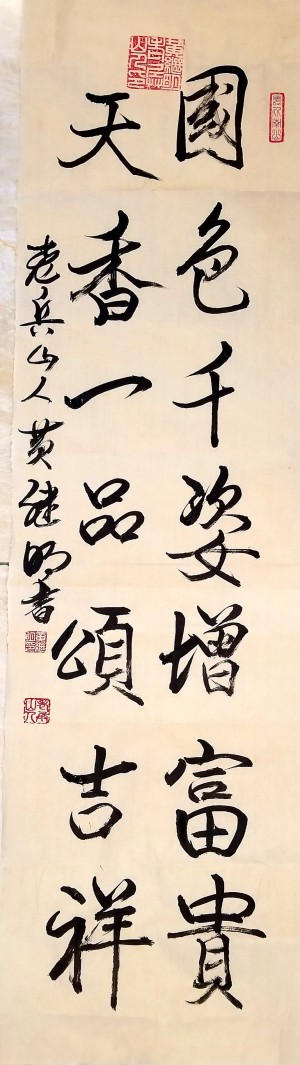 國色千姿增富貴
天香一品頌吉祥
老兵山人黄继明書